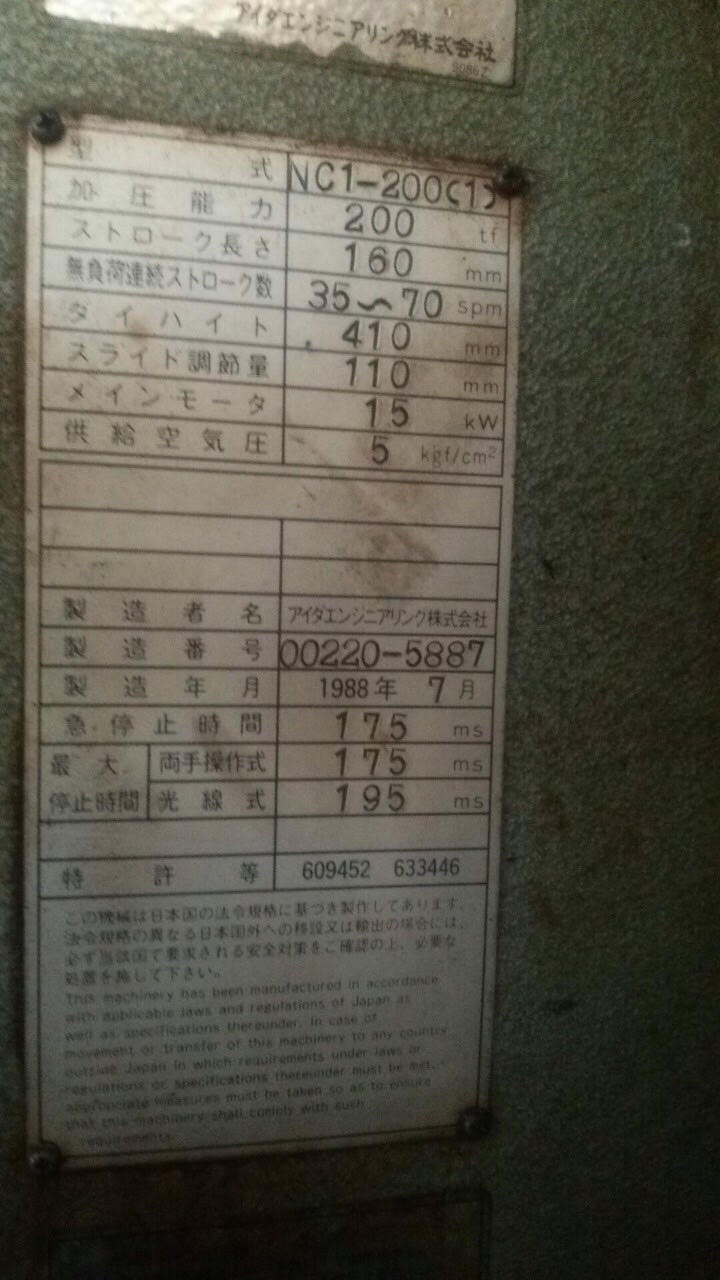 アイダエンジニアリング株式会社
型式 NC1-200(1)
加圧能力 200 tf
ストローク長さ 160 mm
無負荷連続ストローク数 35〜70 spm
ダイハイト 410 mm
スライド調節量 110 mm
メインモータ 15 kW
供給空気圧 5 kgf/cm²
製造者名 アイダエンジニアリング株式会社
製造番号 00220-5887
製造年月 1988年 7月
急停止時間 175 ms
最大停止時間 両手操作式 175 ms
光線式 195 ms
特許等 609452 633446
この機械は日本国の法令規格に基づき製作してあります。
法令規格の異なる日本国外への移設又は輸出の場合には、
必ず当該国で要求される安全対策をご確認の上、必要な
処置を施して下さい。
This machinery has been manufactured in accordance
with applicable laws and regulations of Japan as
well as specifications thereunder. In case of
movement or transfer of this machinery to any country
outside Japan in which requirements under laws or
regulations or specifications thereunder must be met,
appropriate measures must be taken so as to ensure
that this machinery shall comply with such
requirements.